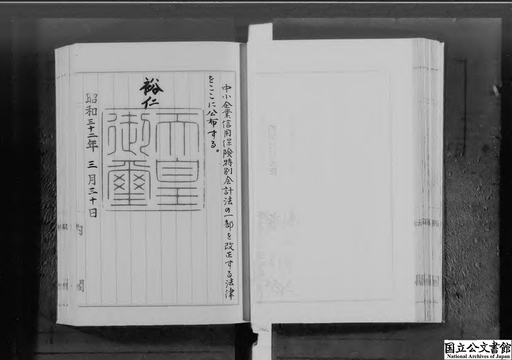 中小企業信用保険特別会計法の一部を改正する法律
をここに公布する。
裕仁
天皇
御璽
昭和三十二年三月三十日
国立公文書館
National Archives of Japan